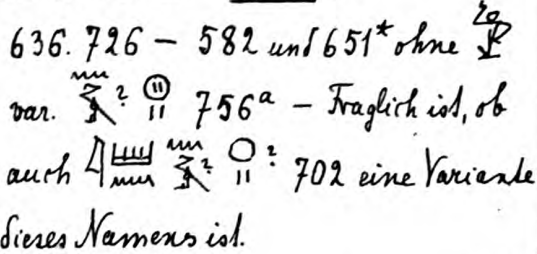 636. 726 – 582 und 651* ohne
var. ? 756ª – Fraglich ist, ob
auch ? ? 702 eine Variante
dieses Namens ist.